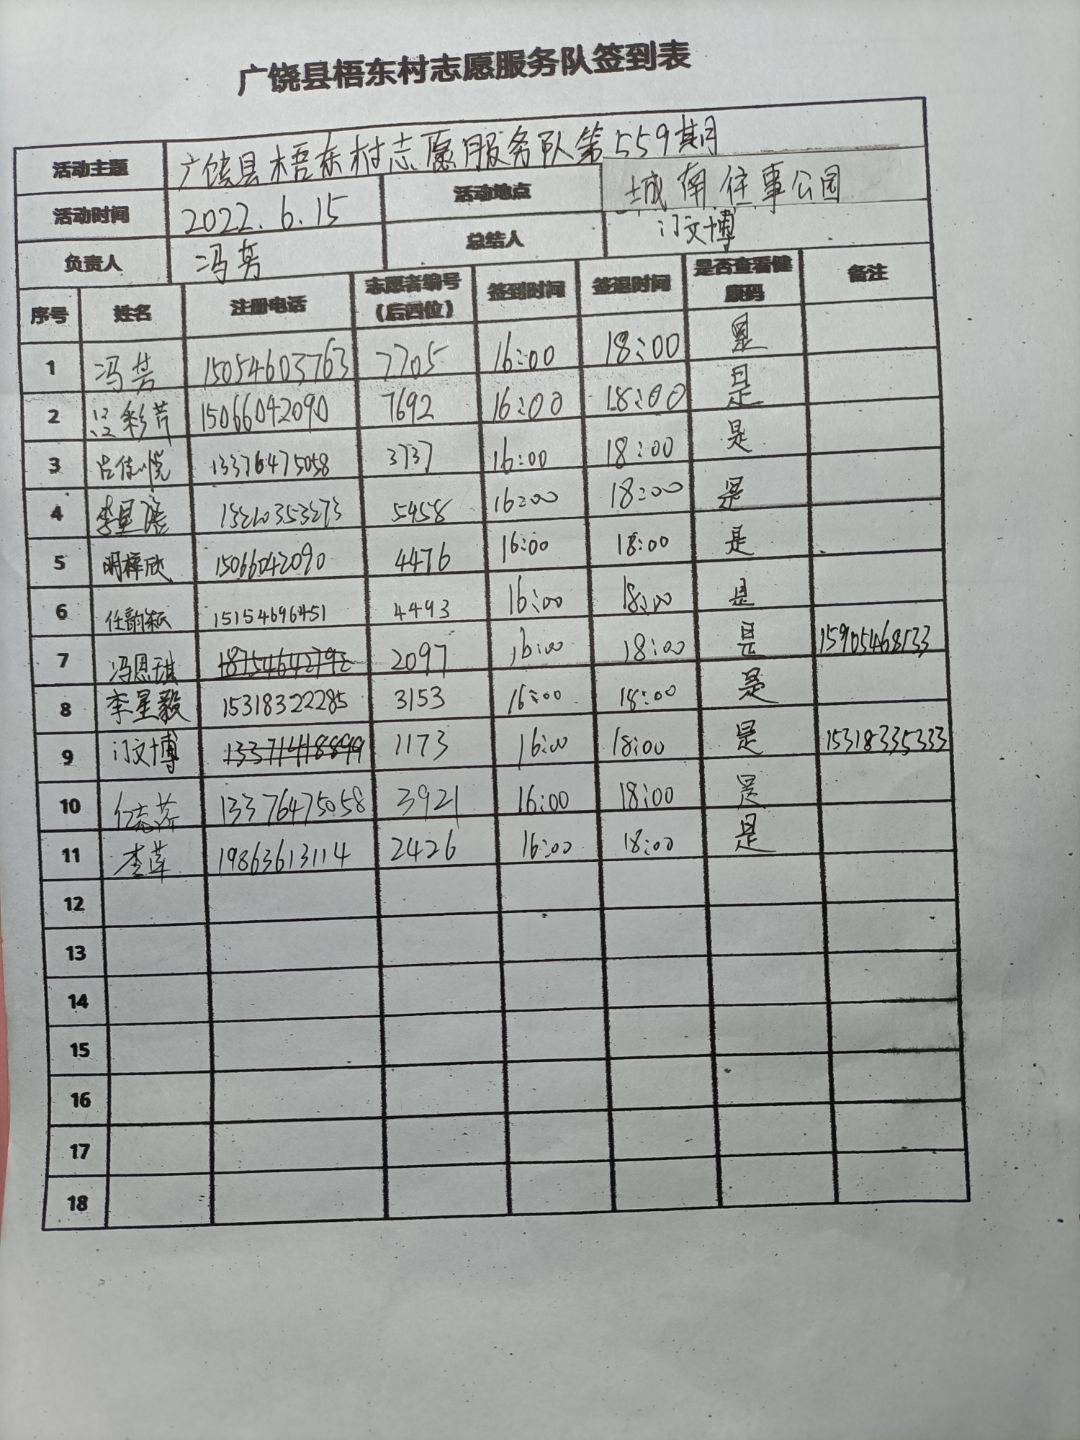 广饶县梧东村志愿服务队签到表
活动主题 广饶县梧东村志愿服务队第559期
活动时间 2022.6.15 活动地点 城南往事公园
负责人 冯芳 总结人 门文博
序号 姓名 注册电话 志愿者编号（后四位） 签到时间 签退时间 是否查看健康码 备注
1 冯芳 15054603763 7705 16:00 18:00 是
2 彩芹 15066042090 7692 16:00 18:00 是
3 13376475058 3737 16:00 18:00 是
4 李星 5458 16:00 18:00 是
5 明梓欣 15066042090 4476 16:00 18:00 是
6 任韵 15154696451 4493 16:00 18:00 是
7 冯恩琪 18754642792 2097 16:00 18:00 是 15905468133
8 李星毅 15318322285 3153 16:00 18:00 是
9 门文博 13371418899 1173 16:00 18:00 是 15318335333
10 13376475058 3921 16:00 18:00 是
11 李萍 19863613114 2426 16:00 18:00 是
12
13
14
15
16
17
18